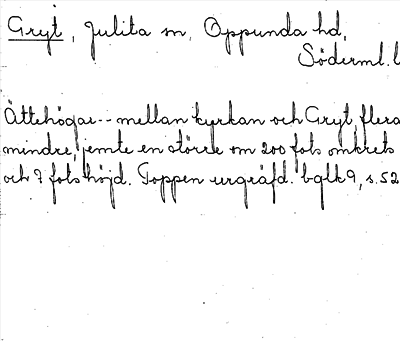 Gryt, Julita sn, Oppunda hd,
Söderml. l
Ättehögar -- mellan kyrkan och Gryt, flera
mindre, jemte en större om 200 fots omkrets
och 7 fots höjd. Toppen urgräfd. bglk 9, s. 52